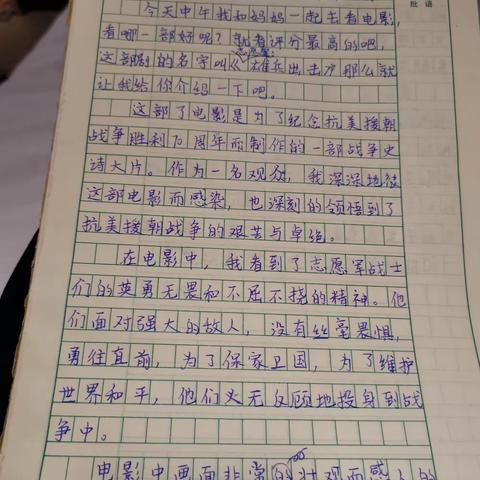 批 语
今天中午我和妈妈一起去看电影,
看哪一部好呢?就看评分最高的吧,
志愿军:
这部剧的名字叫《雄兵出击》那么就
让我给你介绍一下吧。
这部了电影是为了纪念抗美援朝
战争胜利70周年而制作的一部战争史
诗大片。作为一名观众,我深深地被
这部电影而感染,也深刻的领悟到了
抗美援朝战争的艰苦与卓绝。
在电影中,我看到了志愿军战士
们的英勇无畏和不屈不挠的精神。他
们面对强大的敌人,没有丝毫畏惧,
勇往直前,为了保家卫国,为了维护
世界和平,他们义无反顾地投身到战
争中。
电影中画面非常的壮观而感人的